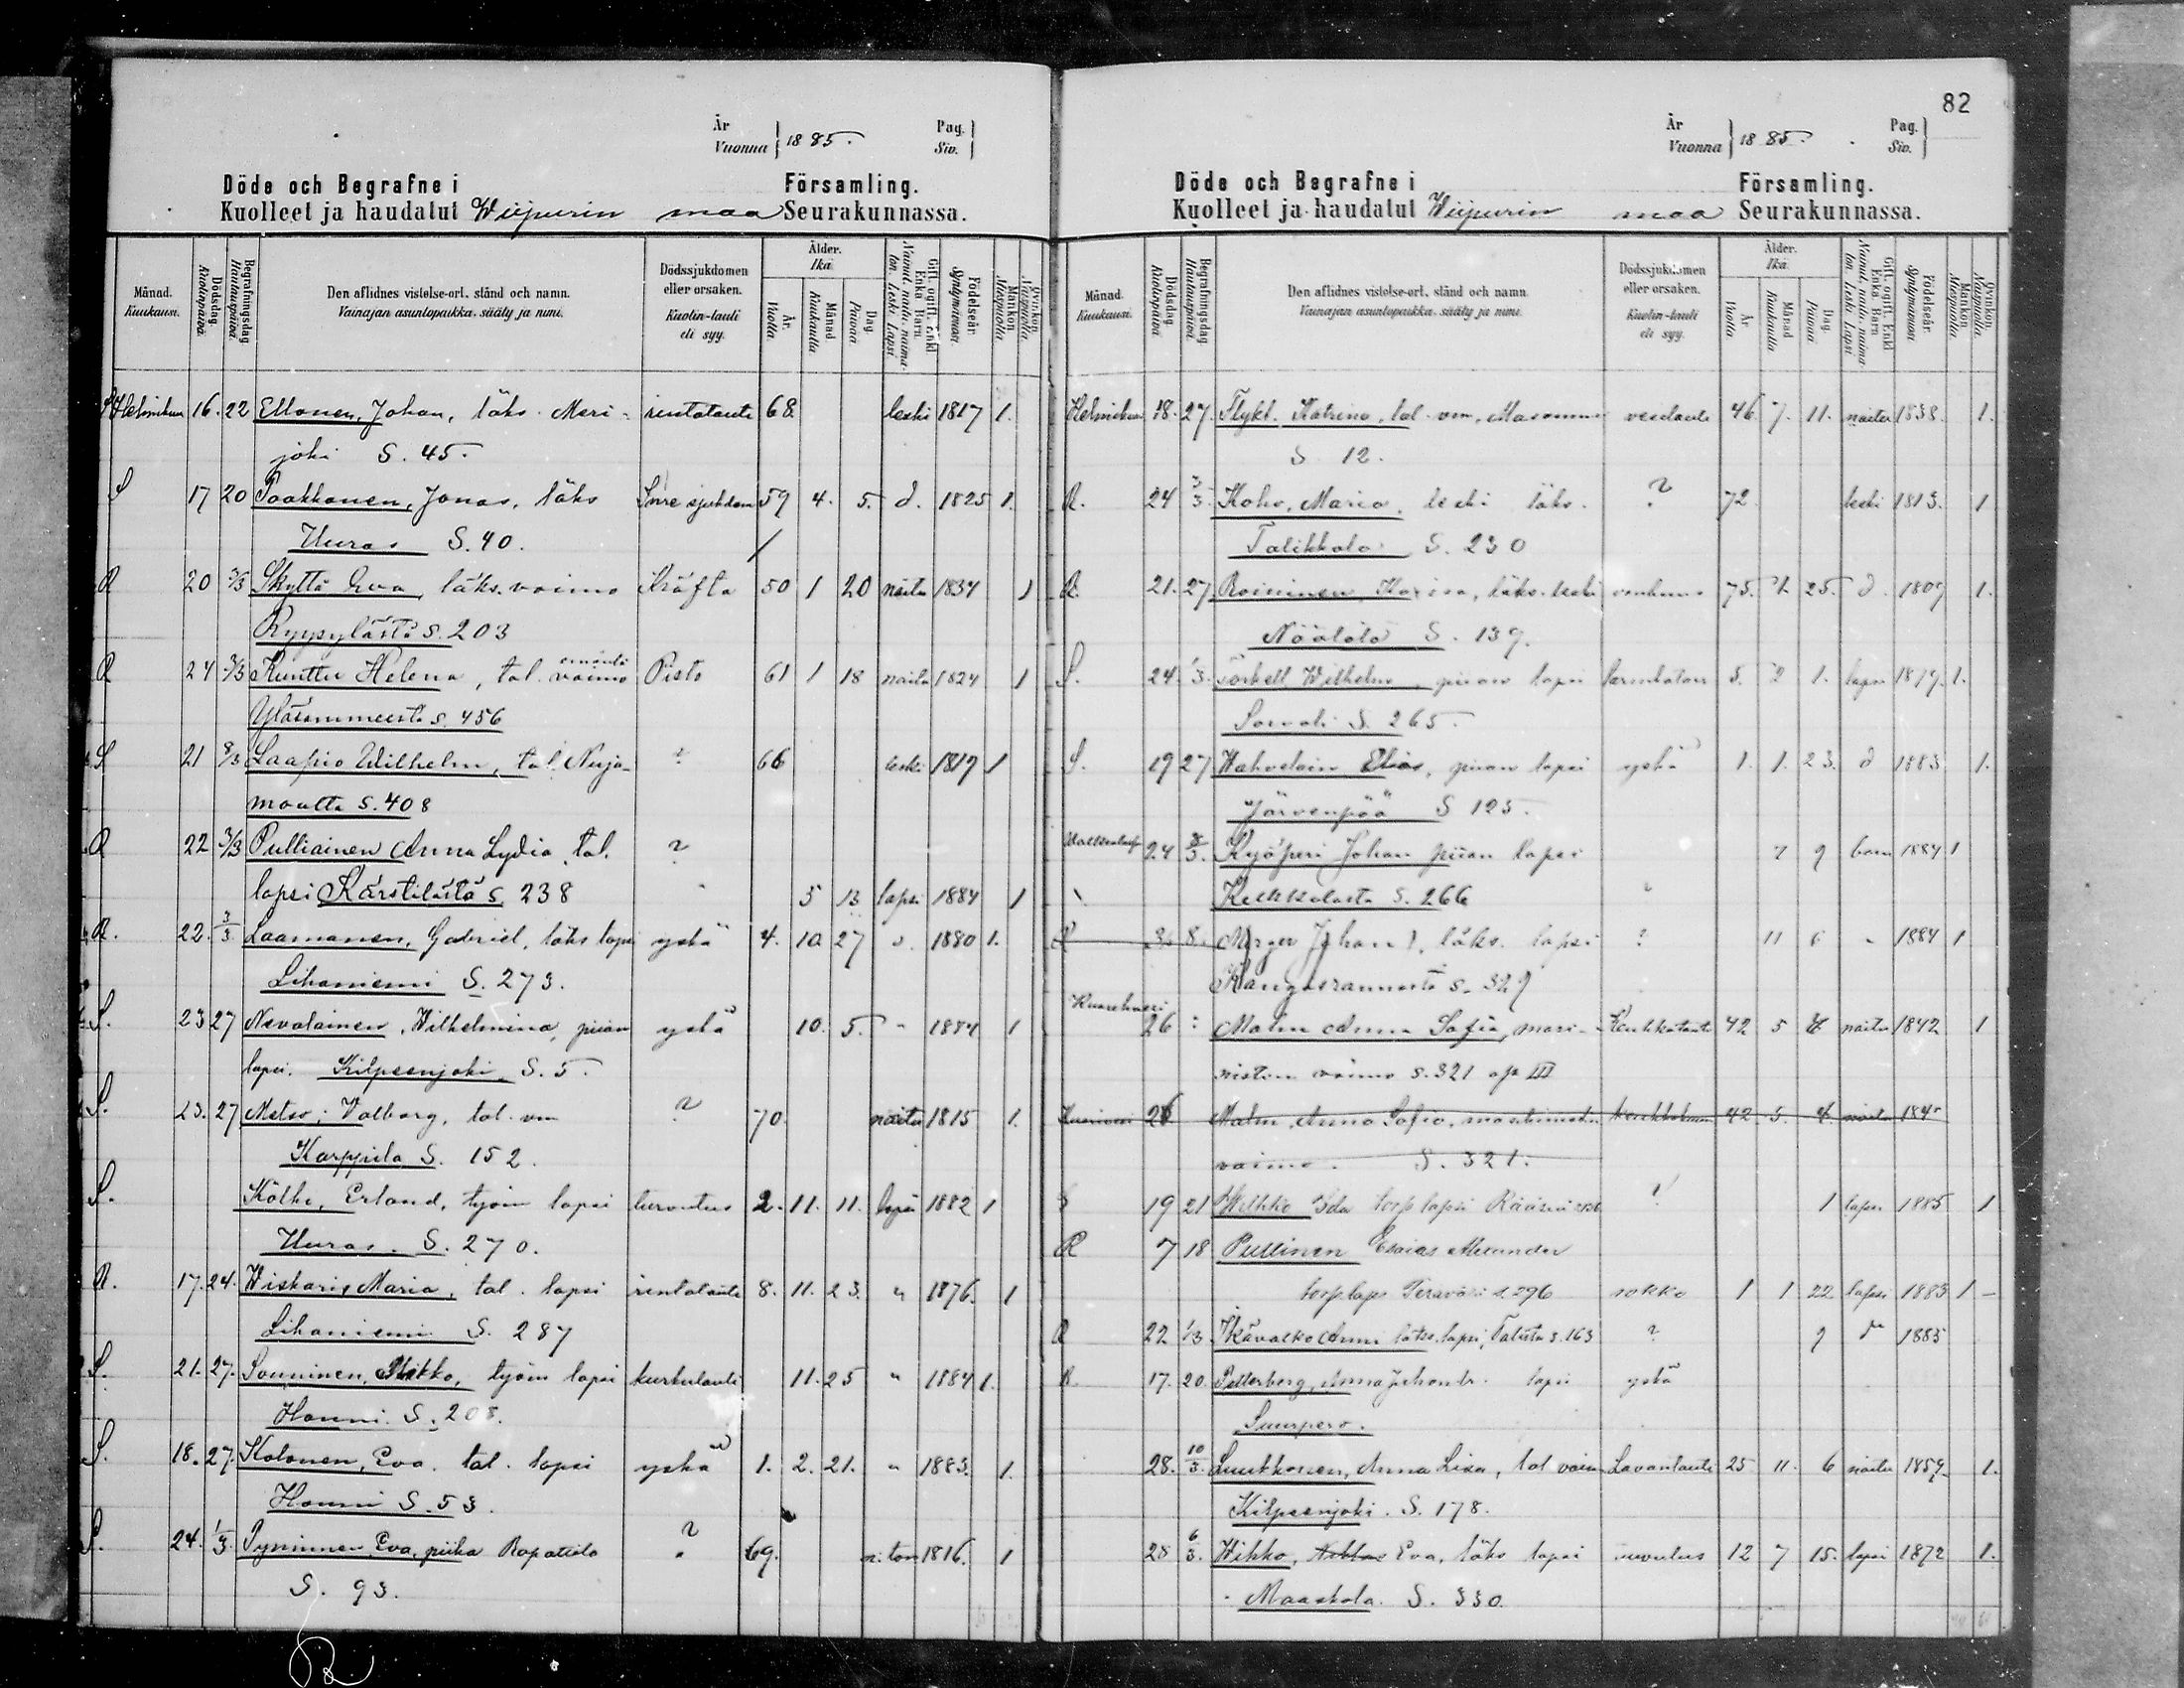 År
Vuonna 1885.
Pag.
Siv.
Döde och Begrafne i Församling.
Kuolleet ja haudatut Wiipurin maa Seurakunnassa.
Månad. Kuukausi.
Dödsdag. Kuolinpäivä.
Begrafningsdag Hautauspäivä
Den aflidnes vistelse-ort, stånd och namn. Vainajan asuntopaikka, sääty ja nimi.
Dödssjukdomen eller orsaken. Kuolin-tauti eli syy.
Ålder. Ikä.
År. Vuotta
Månad Kuukautta
Dag. Päivää
Gift, ogift, Enkl. Enka. Barn. Nainut, naitu, naimaton. Leski. Lapsi.
Födelseår. Syntymävuosi.
Mankön. Miespuolia
Qvinkön. Vaispuolia
Helmikuu 16. 22 Ellonen, Johan, läks. Meri- rintataute 68. leski 1817 1.
joki S. 45.
S 17 20 Paakkanen, Jonas, läks Inre sjukdom 59 4. 5. d. 1825 1.
Uuras S. 40.
R 20 3/3 Skyttä Eva, läks. vaimo Kräfta 50 1 20 naitu 1834 1
Ryypylästä s. 203
R 24 3/3 Kunttu Helena, tal. vaimo emäntä Pisto 61 1 18 naitu 1824 1
Yläsommeesta s. 456
S 21 8/3 Laapio Wilhelm, tal. Nuija- ? 66 leski 1819 1
maalta s. 408
R 22 3/3 Pulliainen Anna Lydia, tal. ?
lapsi Kärstilästä s. 238 5 13 lapsi 1884 1
R. 22. 3/3 Laamanen, Gabriel, läks lapsi yskä 4. 10 27 1880 1.
Lihaniemi S. 273.
S. 23 27 Nevalainen, Wilhelmina, piian yskä 10. 5. " 1884 1
lapsi. Kilpeenjoki. S. 5.
S. 23. 27 Metso, Valborg, tal. vm ? 70. naitu 1815 1.
Karppila S. 152.
S. Kölhi, Erland, työm lapsi turvotus 2. 11. 11. lapsi 1882 1
Uuras. S. 270.
R. 17. 24. Wiskari, Maria, tal. lapsi rintataute 8. 11. 23. " 1876. 1
Lihaniemi S. 287
S. 21. 27. Souninen, Mikko, työm lapsi kurkutaute 11. 25 " 1884 1.
Hounni. S. 208.
S. 18. 27. Kolonen, Eva. tal. lapsi yskä 1. 2. 21. " 1883. 1.
Hounni S. 53.
S. 24. 1/3. Pyninnen, Eva, piika Rapattila ? 69. n:ton 1816. 1
S. 93.
R
82
År
Vuonna 1885.
Pag.
Siv.
Döde och Begrafne i Församling.
Kuolleet ja haudatut Wiipurin maa Seurakunnassa.
Månad. Kuukausi.
Dödsdag. Kuolinpäivä
Begrafningsdag Hautauspäivä
Den aflidnes vistelse-ort, stånd och namn. Vainajan asuntopaikka, sääty ja nimi.
Dödssjukdomen eller orsaken. Kuolin-tauti eli syy.
Ålder. Ikä.
År Vuotta
Månad Kuukautta
Dag. Päivää
Gift, ogift, Enkl. Enka. Barn. Nainut, naitu, naimaton. Leski. Lapsi.
Födelseår. Syntymävuosi
Mankön. Miespuolia
Qvinkön. Vaispuolia
Helmikuu 18. 27. Flykt. Katrina, tal. vm. vesitaute 46. 7. 11. naitu 1838. 1.
S 12.
R. 24 3/3. Koho, Maria, leski läks. ? 72 leski 1813. 1
Talikkala S. 230
R. 21. 27 Roininen, Karina, läks. leski vanhuus 75. 25. d. 1809 1.
Näätälä S. 139.
S. 24. 1/3. Törkell Wilhelm, piian lapsi 5. 2 1. lapsi 1879. 1.
Sorvali S. 265.
S. 19 27 Wahvelain Elias, piian lapsi yskä 1. 1. 23. d 1883 1.
Järvenpää S 125.
24 8/3. Kyöperi Johan piian lapsi 7 9 barn 1884 1
Kelkkalasta S. 266
R 8. Johan, läks. lapsi ? 11 6 1884 1
Kangasrannasta s. 329
26 : Malm Anna Sofia, mari- Keuhkotaute 42 5 4 naitu 1842 1
nistin vaimo s. 321 op III
26 Malm, Anna Sofia, 42. 5. 4. naitu 184
vaimo. S. 321.
S 19 21 Welhko Ida torp lapsi ? 1 lapsi 1885 1
R 7 18 Pullinen Esaias Alexander
torp. laps. s. 296 rokko 1 1 22 lapsi 1883 1 -
R 22 1/3 Anna läks. lapsi, s. 163 ? 9 d 1885
R. 17. 20. Petterberg, Anna lapsi yskä
Suurpero.
28. 10/3. Luukkonen, Anna Lisa, tal vaim Lavantaute 25 11. 6 naitu 1859 1.
Kilpeenjoki. S. 178.
28 6/3. Wihko, Eva, läks lapsi 12 7 15. lapsi 1872 1.
Maaskola. S. 330.